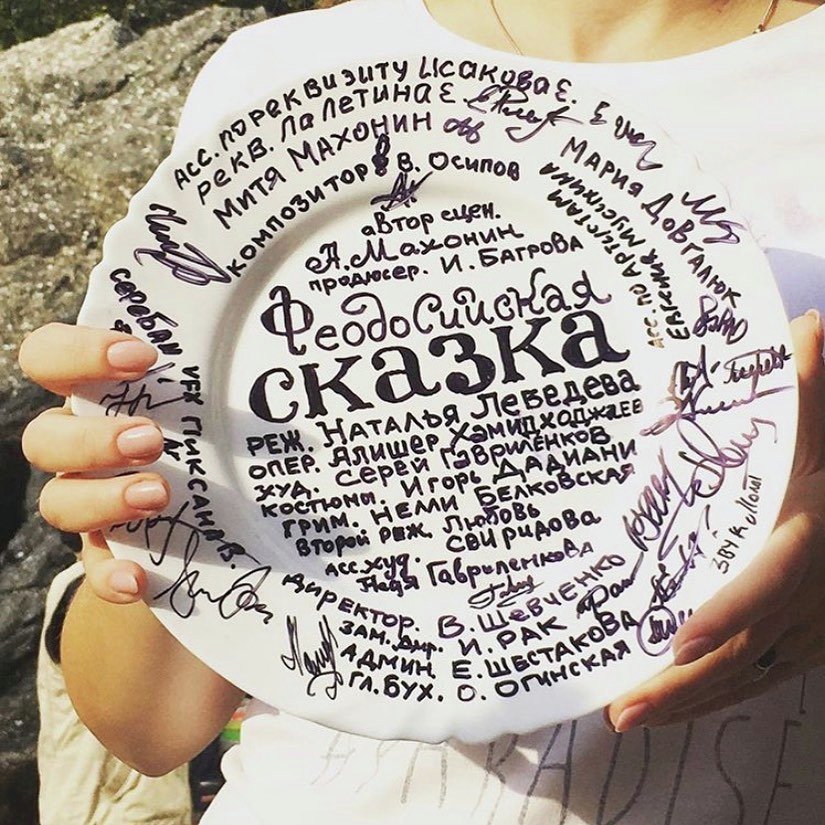 асс. по реквизиту Исакова Е.
рекв. Палетина Е.
Митя Махонин
композитор В. Осипов
автор сцен.
А. Махонин
продюсер. И. Багрова
Феодосийская
сказка
реж. Наталья Лебедева
опер. Алишер Хамидходжаев
худ. Серей Гавриленков
костюмы. Игорь Дадиани
грим. Нелли Белковская
второй реж. Любовь
Свиридова
асс. худ.
Надя Гавриленкова
директор. В. Шевченко
зам. дир. И. Рак
админ. Е. Шестакова
гл. бух. О. Огинская
Мария Довгалюк
асс. по артистам
Евгения Мусихина
Серебан
VFX Пиксанав.
звук
PARADISE